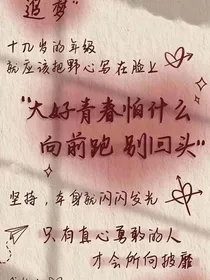 追梦"
十九岁的年级
就应该把野心写在脸上
"大好青春怕什么
向前跑 别回头"
坚持，本身就闪闪发光
只有真心勇敢的人
才会所向披靡